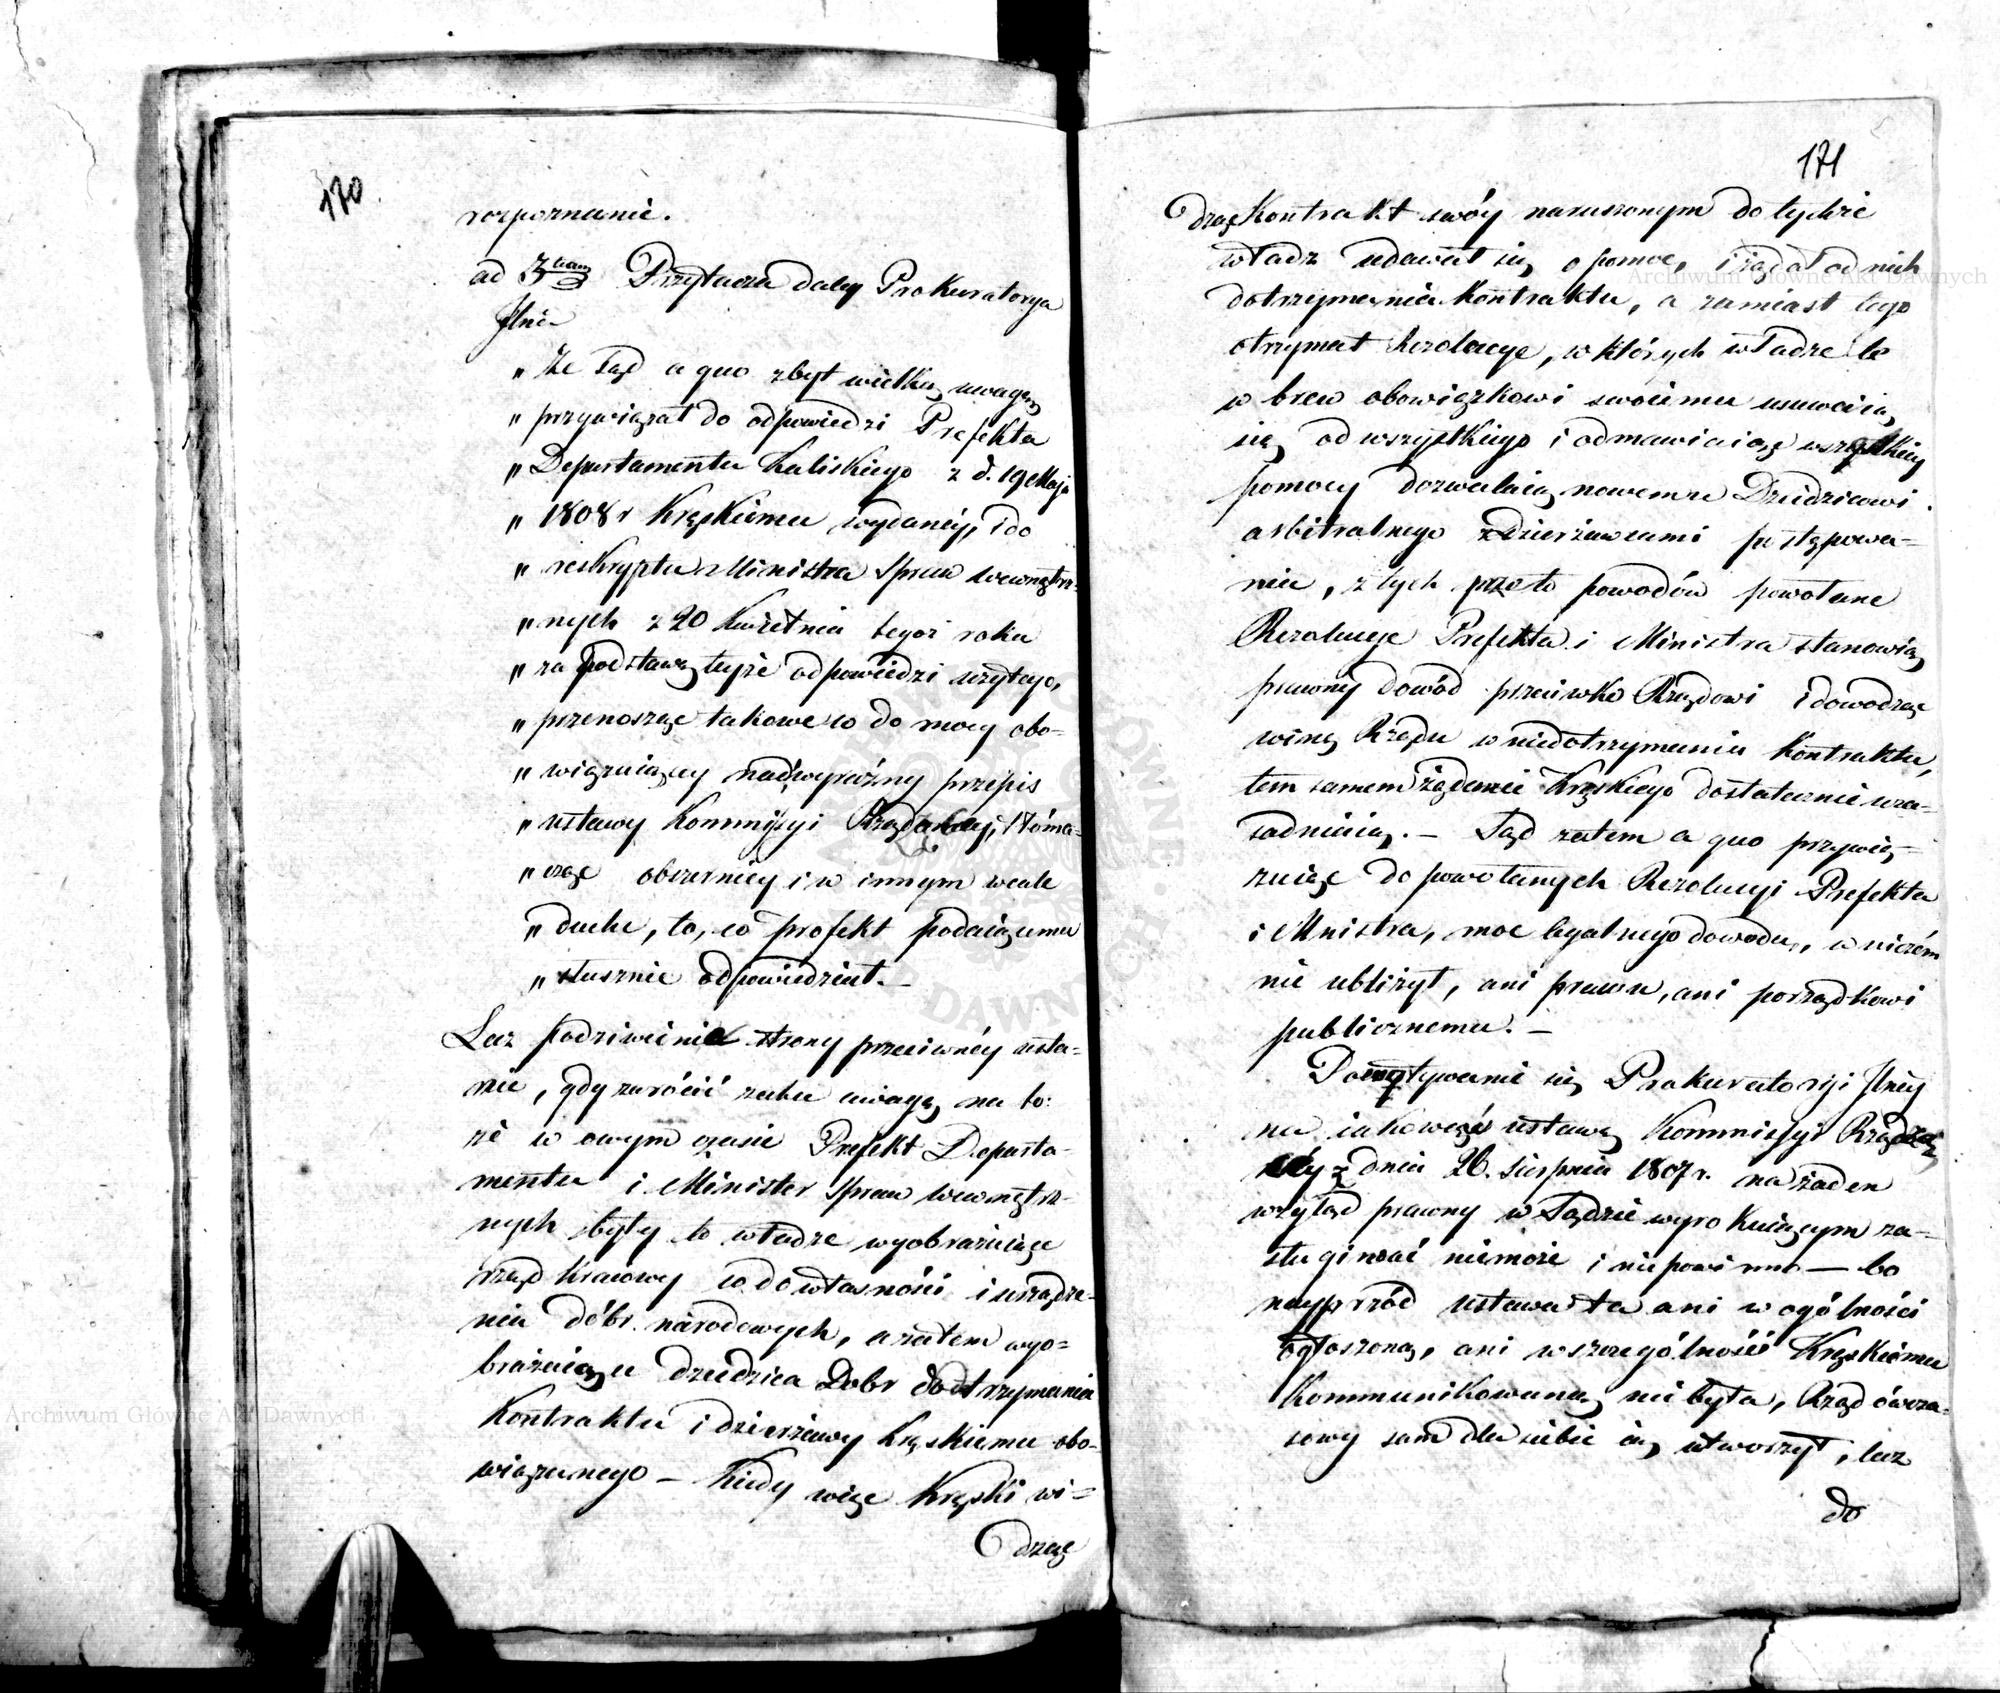 170.
rozpoznanie.
ad 3tium Przytacza daley Prokuratorya
Jlna
„ Że Sąd a quo zbyt wielką uwagę
„ przywiązał do odpowiedzi Prefekta
„ Departamentu Kaliskiego z d. 19 Maja
„ 1808 r Kręskiemu wydaney, i do
„ reskryptu Ministra Spraw wewnętrz-
„ nych z 20 Kwietnia tegoż roku
„ za podstawę teyże odpowiedzi użytego,
„ przenosząc takowe co do mocy obo-
„ wiązuiącey nad wyraźny przepis
„ ustawy Kommissyi Rządzącey, tłóma-
„ cząc obszerniey i w innym wcale
„ duchu, to, co prefekt podaiącemu
„ słusznie odpowiedział. –
Lecz podziwienie strony przeciwnéy usta-
nie, gdy zwrócić zechce uwagę na to:
że w owym czasie Prefekt Departa-
mentu i Minister Spraw wewnętrz-
nych były to władze wyobrażaiące
rząd kraiowy co do własności i urządze-
nia dóbr narodowych, a zatem wyo-
brażaiące dziedzica Dobr do dotrzymania
Kontraktu i dzierżawy Kręskiemu obo-
wiązanego – Kiedy więc Kręski wi-
dząc
171
dząc Kontrakt swóy naruszonym do tychże
władz udawał się o pomoc, i żądał od nich
dotrzymania Kontraktu, a zamiast tego
otrzymał Rezolucye, w których władze te
w brew obowiązkowi swoiemu usuwaią
się od wszystkiego i odmawiaiąc wszelkiey
pomocy dozwalaią nowemu Dziedzicowi
arbitralnego z dzierżawcami postępowa-
nia, z tych przeto powodów powołane
Rezolucye Prefekta i Ministra stanowią
prawny dowód przeciwko Rządowi i dowodząc
winę Rządu w niedotrzymaniu Kontraktu,
tem samem żądanie Kręskiego dostatecznie uza-
sadniaią. – Sąd zatem a quo przywią-
zuiąc do powołanych Rezolucyi Prefekta
i Mnistra, moc legalnego dowodu, w niczém
nie ubliżył, ani prawu, ani porządkowi
publicznemu. –
Powoływanie się Prokuratoryi Jlney
na iakowąś ustawę Kommissyi Rządzą
céy z dnia 26. Sierpnia 1807 r. na żaden
wzgląd prawny w Sądzie wyrokuiącym za-
sługiwać niemoże i niepowinno – bo
nayprzód ustawa ta ani w ogólności
ogłoszoną, ani w szczególności Kręskiemu
Kommunikowaną nie była, Rząd ówcza-
sowy sam dla siebie ią utworzył, lecz
do
Archiwum Główne Akt Dawnych
Archiwum Główne Akt Dawnych